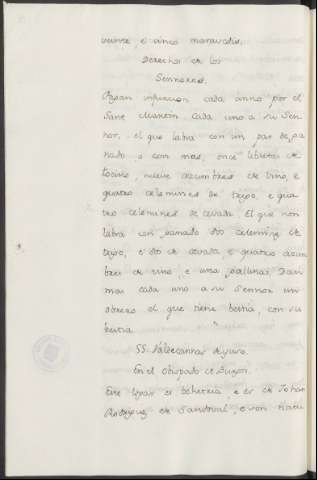 veinte, e cinco maravedis.
Derechos de los
Sennores.
Pagan infurcion cada anno por el
Sant Martin cada uno a su Sen-
nor, el que labra con un par de ga-
nado o con mas, once libretas de
tocino, nueve azumbres de vino, e
quatro celemines de trigo, e qua-
tro celemines de cevada. El que non
labra con ganado dos celemines de
trigo, e dos de cevada e quatro azum-
bres de vino, e una gallina. Dan
mas cada uno a su Sennor un
obrero el que tiene bestia, con su
bestia.
SS. Valdecannas de yuso.
En el Obispado de Burgos.
Este logar es behetria, e es de Johan
Rodriguez de Sandoval, e von